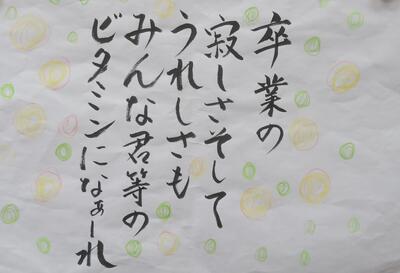 卒業の
寂しさそして
うれしさも
みんな君等の
ビタミンになぁーれ